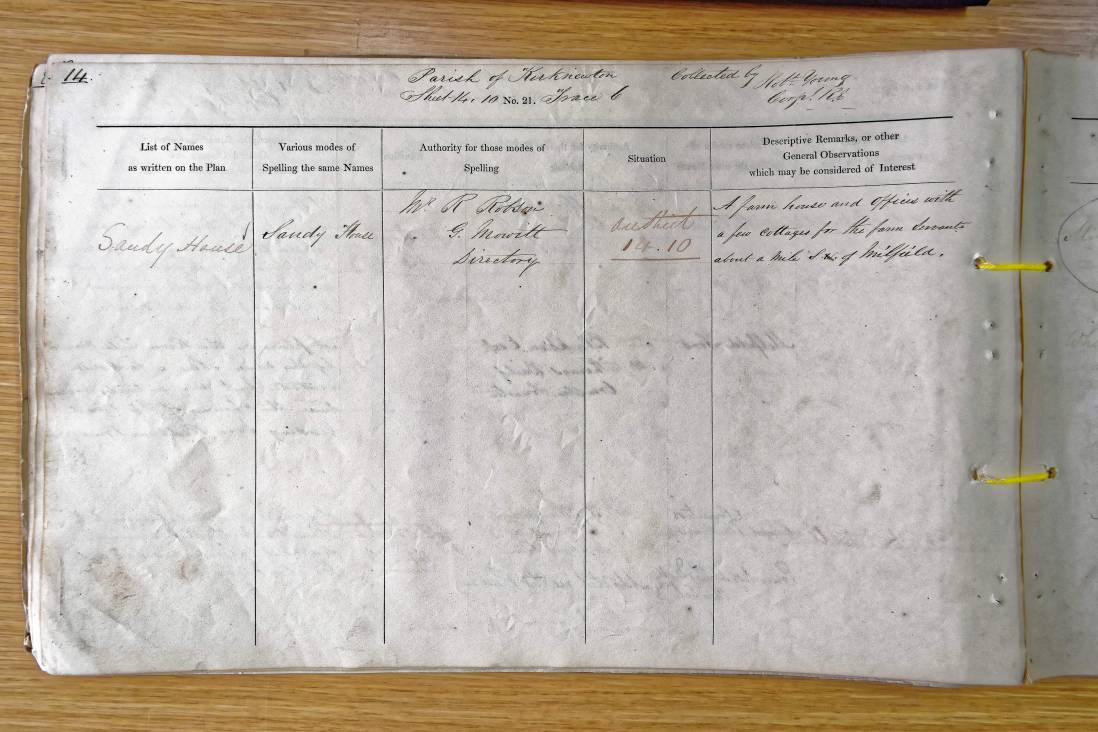 14.
Parish of Kirknewton
Collected by Robt. Young
Sheet 14. 10 No. 21. Trace 6
Corpl. R.E.
List of Names
as written on the Plan
Various modes of
Spelling the same Names
Authority for those modes of
Spelling
Situation
Descriptive Remarks, or other
General Observations
which may be considered of Interest
Sandy House
Sandy House
Mr. R Robson
G. Mowitt
Directory
14.10
A farm house and offices with
a few cottages for the farm servants
about a mile S. of Milfield.